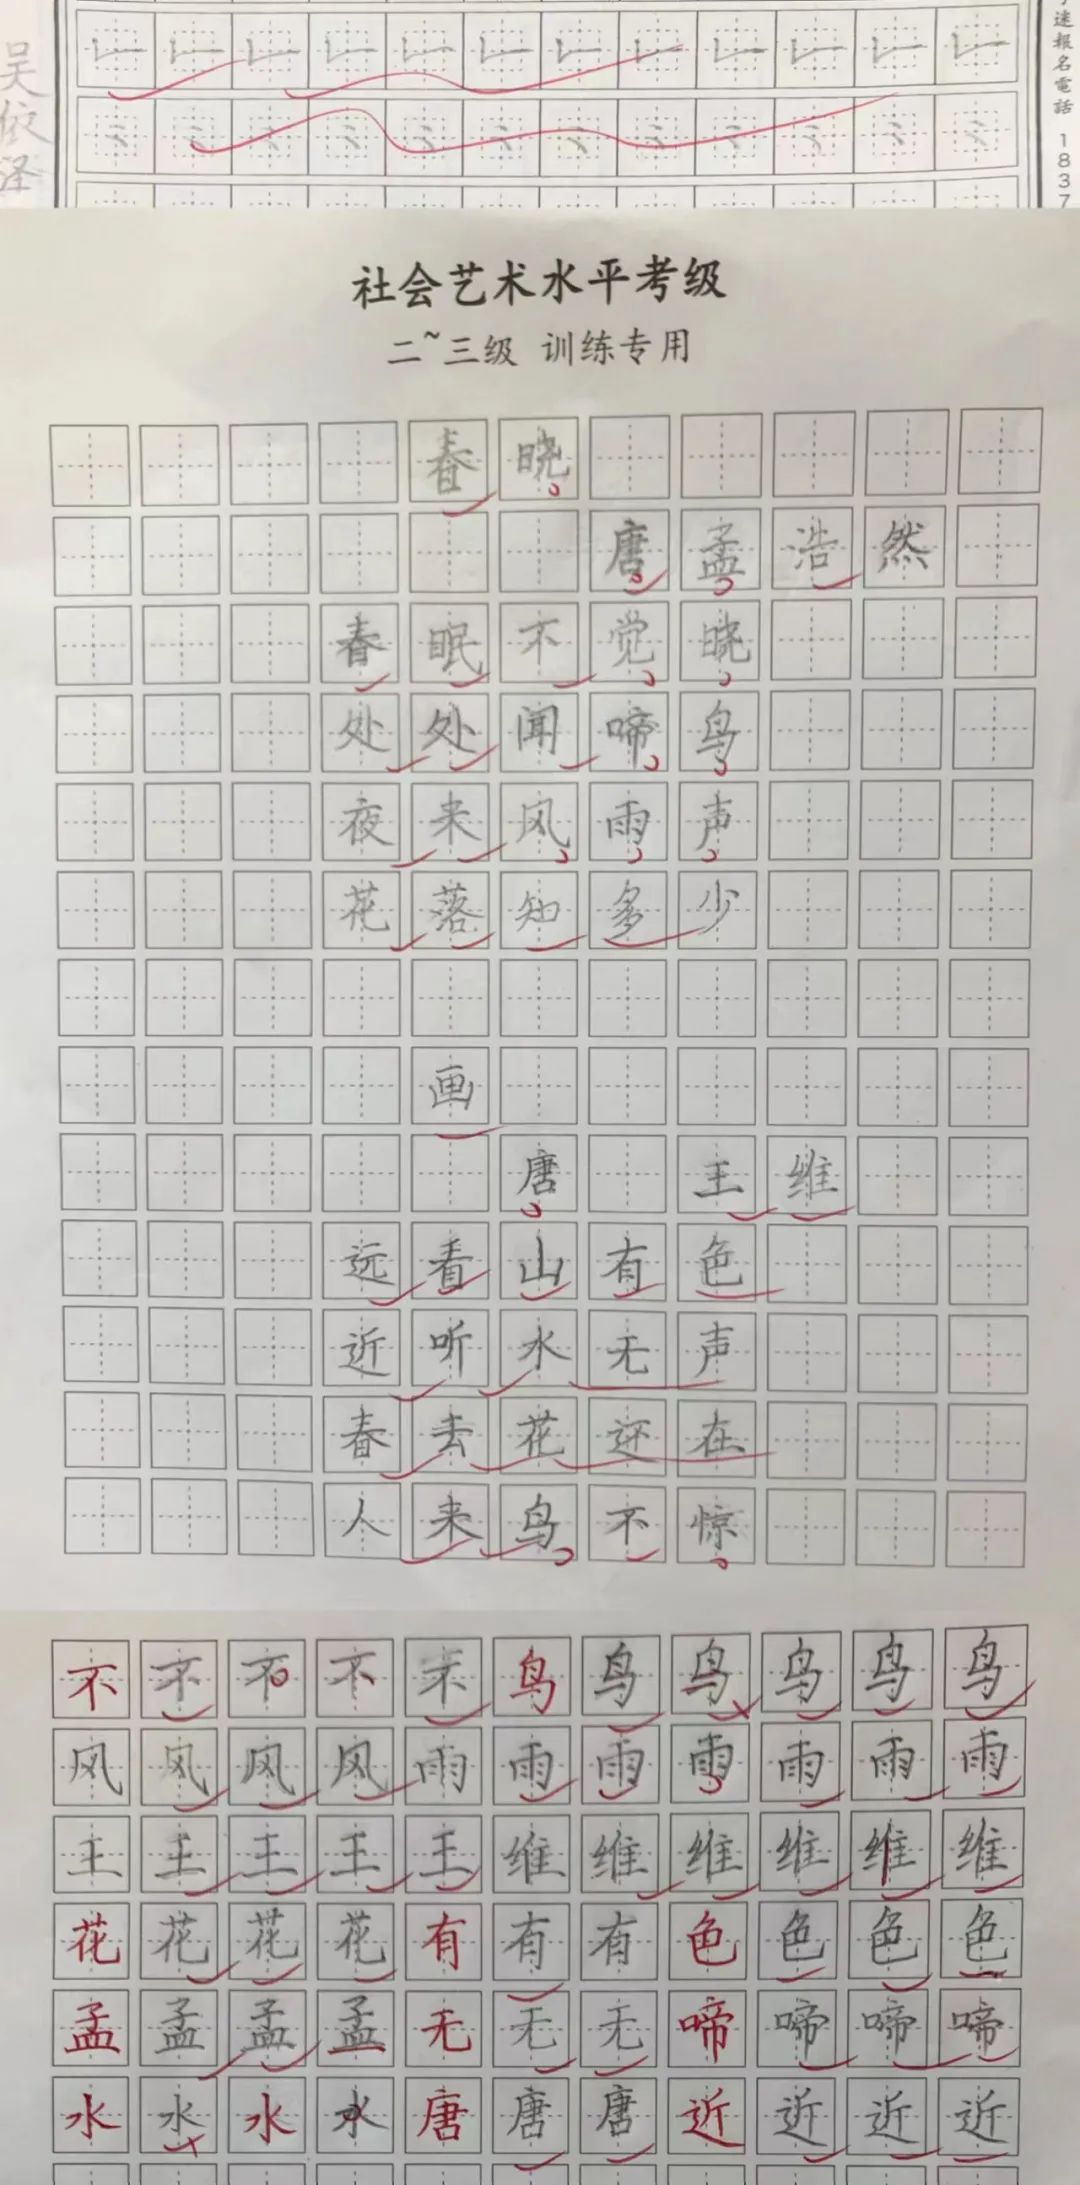 速報名電話 1837
吴依泽
社会艺术水平考级
二~三级 训练专用
春晓
唐孟浩然
春眠不觉晓
处处闻啼鸟
夜来风雨声
花落知多少
画
唐 王维
远看山有色
近听水无声
春去花还在
人来鸟不惊
不不不不不鸟鸟鸟鸟鸟鸟
风风风风雨雨雨雨雨雨雨
王王王王王维维维维维维
花花花花有有有色色色色
孟孟孟孟无无无啼啼啼啼
水水水水唐唐唐近近近近